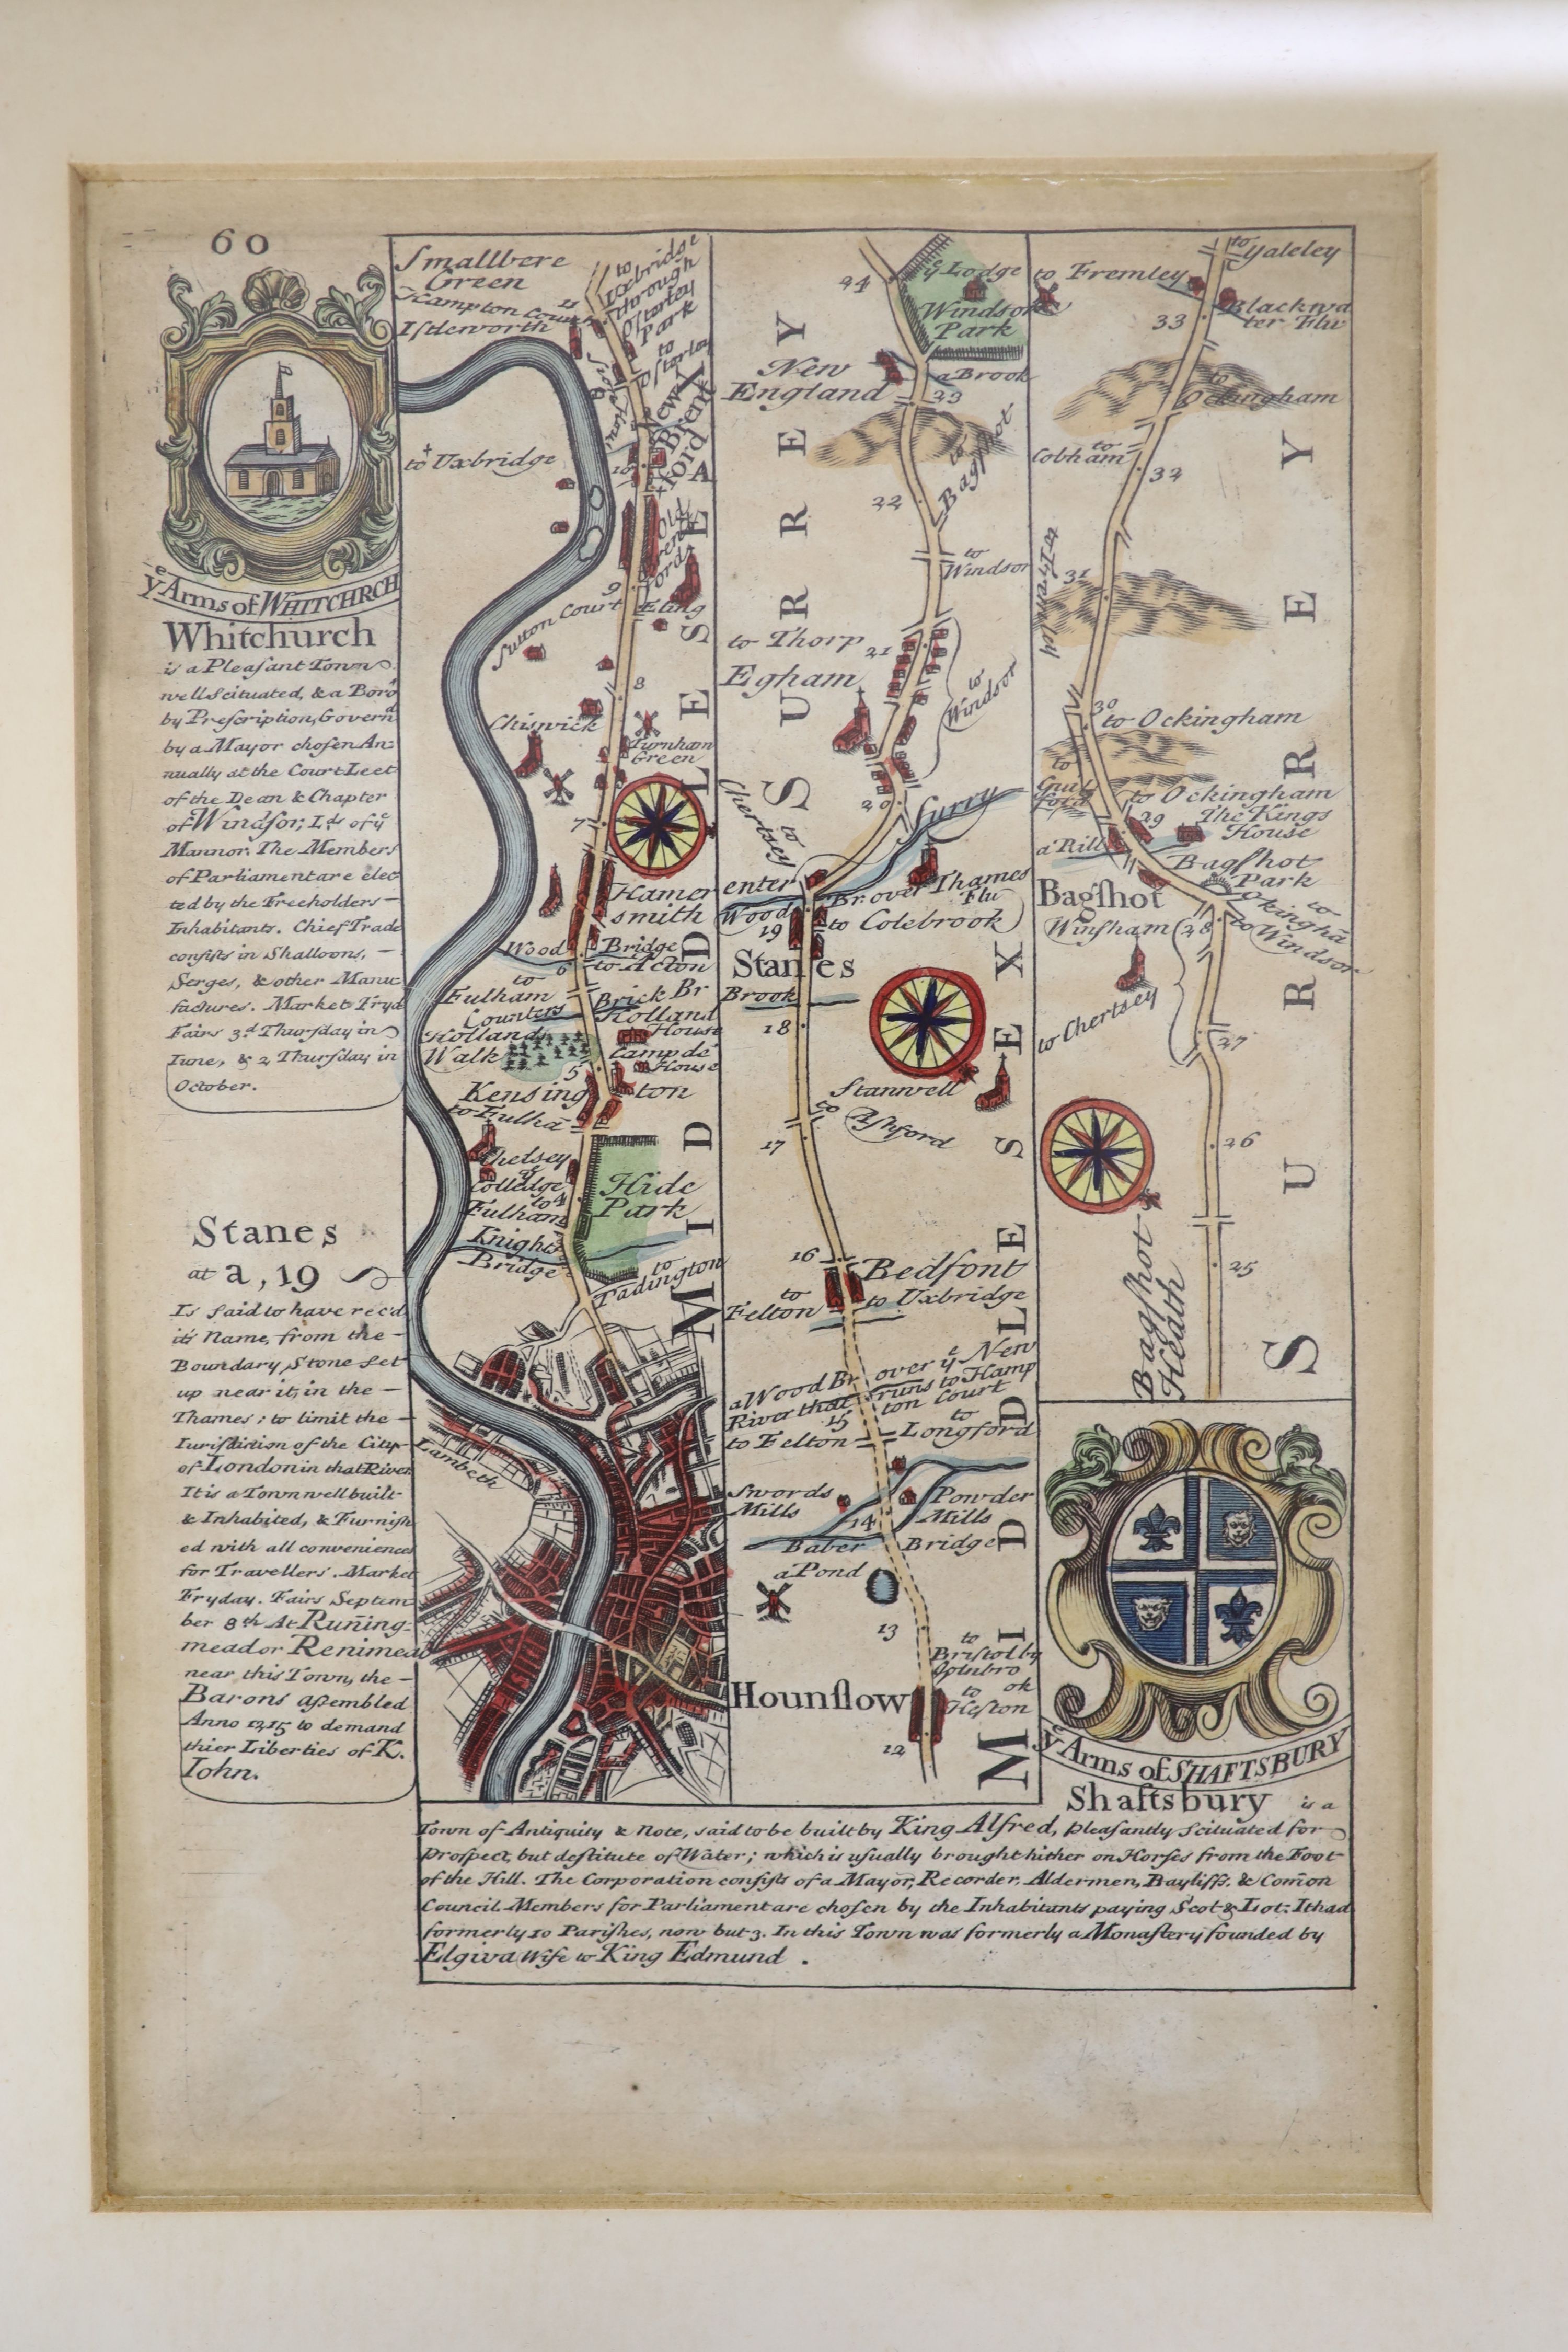 60
yᵉ Arms of WHITCHRCH
Whitchurch
is a Pleaſant Town
well scituated, & a Boro
by Preſcription, Govern'd
by a Mayor choſen An=
nually at the Court Leet
of the Dean & Chapter
of Windſor; Lds of yᵉ
Mannor. The Members
of Parliament are elec
ted by the Freeholders —
Inhabitants. Chief Trade
conſiſts in Shalloons, —
Serges, & other Manu-
factures. Market Fryd
Fairs 3.d Thurſday in
Iune, & 2 Thurſday in
October.
Stanes
at a, 19
Is ſaid to have rec'd
its Name, from the —
Boundary Stone ſet
up near it, in the —
Thames: to limit the —
Iuriſdiction of the City
of London in that River
It is a Town well built
& Inhabited, & Furniſh
ed with all conveniences
for Travellers. Market
Fryday. Fairs Septem
ber 8th At Runing-
mead or Renimead
near this Town, the —
Barons aſsembled
Anno 1215 to demand
thier Liberties of K.
Iohn.
Smallbere
Green
Hampton Court
Iſtleworth
to
Icebridge
through
Oſterley
Park
to
Oſterley
New
Brent
ford
to Uxbridge
10
A
Old
Brent
ford
9
Sutton Court
Eling
8
Chiswick
Turnham
Green
7
Hamer
smith
Wood
Bridge
6
to Acton
to
Fulham
Brick Br
Counters
Holland
House
Holland
Walk
Campde
House
5
Kensing
ton
to Fulhā
Chelsey
&
Colledge
to 4
Fulham
Hide
Park
Knights
Bridge
to
Padington
Lambeth
MIDDLESEX
24
yᵉ Lodge
Windsor
Park
New
England
a Brook
23
to
Bagſhot
22
to
Windsor
to Thorp
21
Egham
to
Windsor
20
Surry
to
Chertsey
enter
Br. over Thames
Flu
Wood
19
to Colebrook
Stanes
Brook
18
Stanwell
to
Aſhford
17
16
Bedfont
to
Felton
to Uxbridge
a Wood Br over yᵉ New
River that runs to Hamp
ton Court
15
to Felton
to
Longford
Swords
Mills
Powder
Mills
14
Baber
Bridge
a Pond
13
to
Briſtol by
Colnbro
ok
to
Heſton
Hounſlow
12
SURREY
MIDDLESEX
to Fremley
to
Yateley
Blackwa
ter Flu
33
to
Ockingham
to
Cobham
32
to Fremley
31
30
to Ockingham
to
Guil
ford
to Ockingham
29
The Kings
House
a Rill
Bagſhot
Park
Bagſhot
to
Okinghā
Winſham
28
to Windsor
to Chertsey
27
26
25
Bagſhot
Heath
SURREY
yᵉ Arms of SHAFTSBURY
Shaftsbury is a
Town of Antiquity & Note, said to be built by King Alfred, pleaſantly ſcituated for
Proſpect, but deſtitute of Water; which is uſually brought hither on Horſes from the Foot
of the Hill. The Corporation conſiſts of a Mayor, Recorder, Aldermen, Bayliffs, & Comōn
Council. Members for Parliament are choſen by the Inhabitants paying Scot & Lot: It had
formerly 10 Pariſhes, now but 3. In this Town was formerly a Monaſtery founded by
Elgiva Wife to King Edmund.